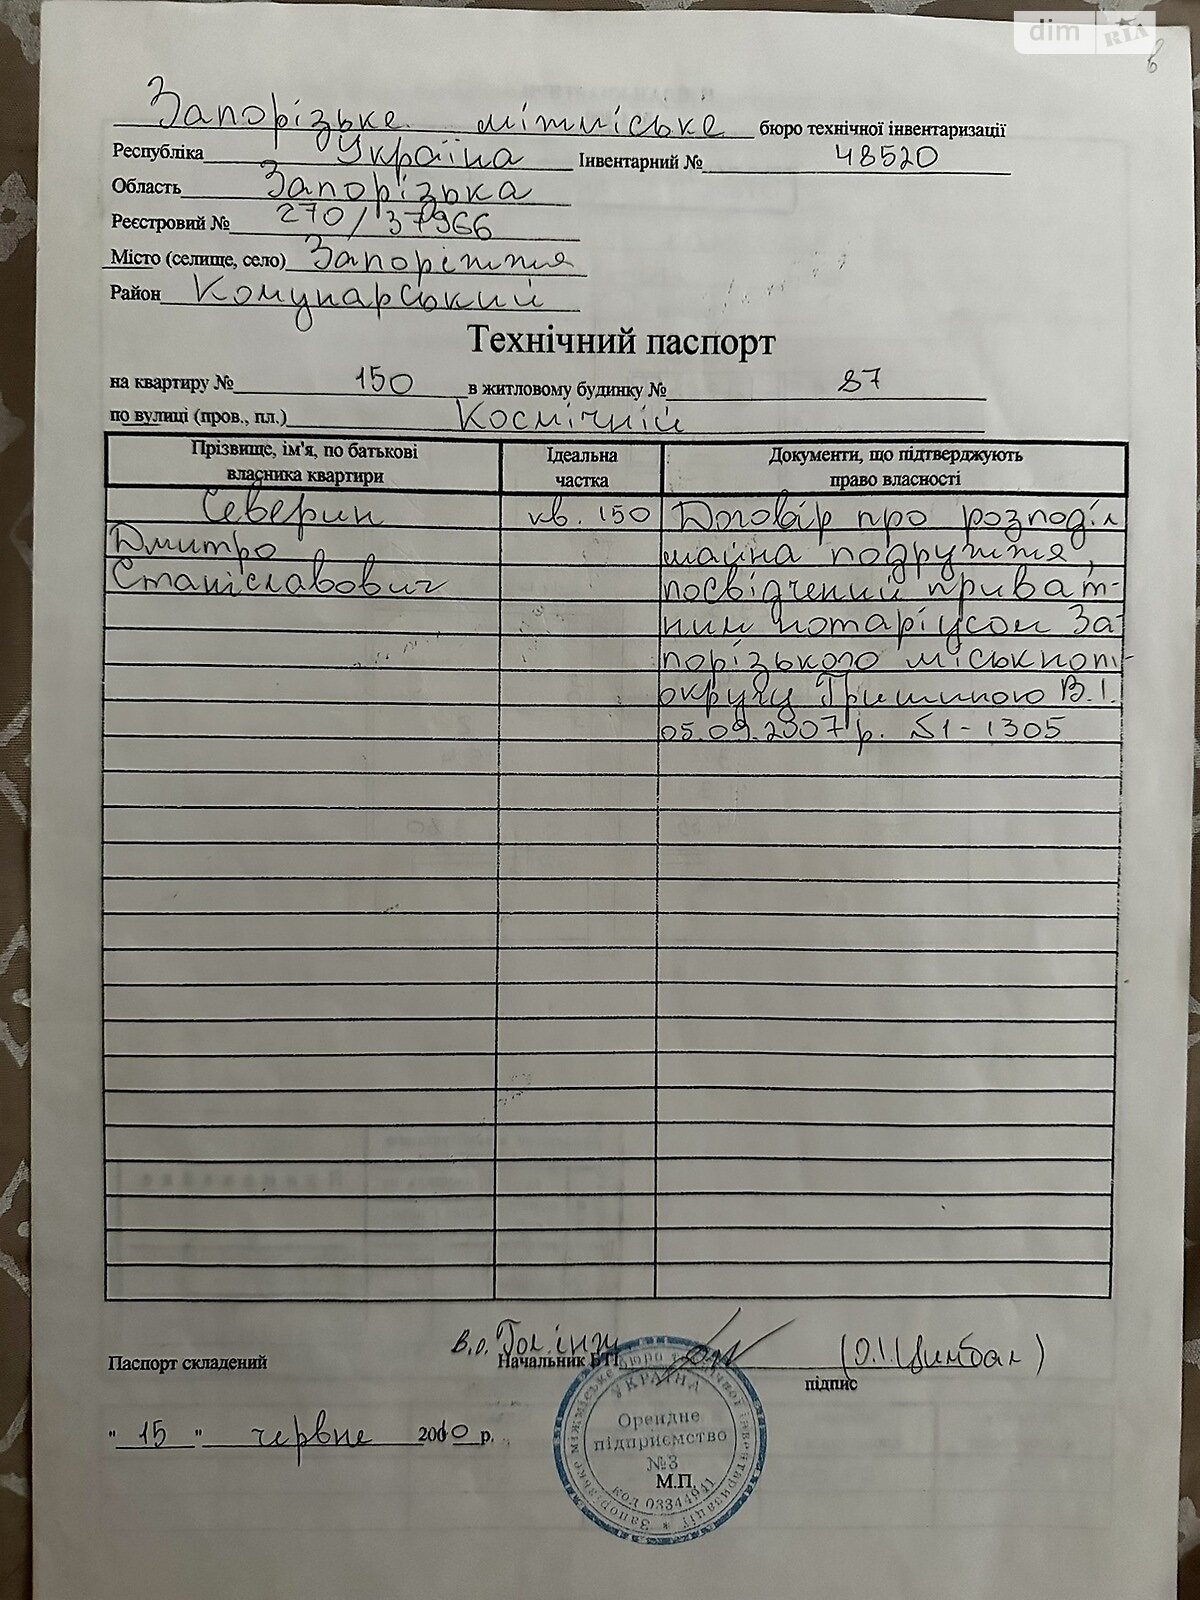 dim RIA
Запорізьке міжміське бюро технічної інвентаризації
Республіка Україна Інвентарний № 48520
Область Запорізька
Реєстровий № 270/37966
Місто (селище, село) Запоріжжя
Район Комунарський
Технічний паспорт
на квартиру № 150 в житловому будинку № 87
по вулиці (пров., пл.) Космічній
Прізвище, ім'я, по батькові власника квартири
Ідеальна частка
Документи, що підтверджують право власності
Северин кв. 150 Договір про розподіл
Дмитро майна подружжя,
Станіславович посвідчений приват-
ним нотаріусом За-
порізького міськнот
округу Гришиною В.І.
05.09.2007 р. S1-1305
в.о. Гол.інж
Паспорт складений Начальник БТІ (О.І.Цимбал)
підпис
"15" червне 2010 р.
Запорізьке міжміське бюро технічної інвентаризації
УКРАЇНА
Орендне
підприємство
№3
М.П.
код 03344941